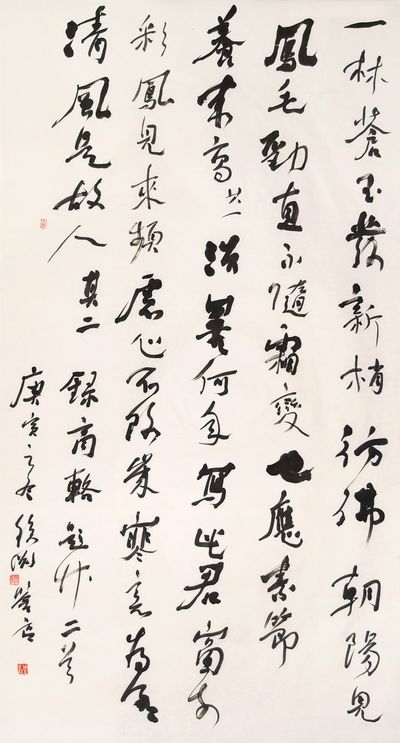 一林蒼玉發新梢彷彿朝陽見
鳳毛勁直不隨霜變也應素節
養來高其一潑墨何年寫此君窗前
彩鳳見來頻虛心不改歲寒意為
清風是故人其二錄高輅題竹二首
庚寅之冬